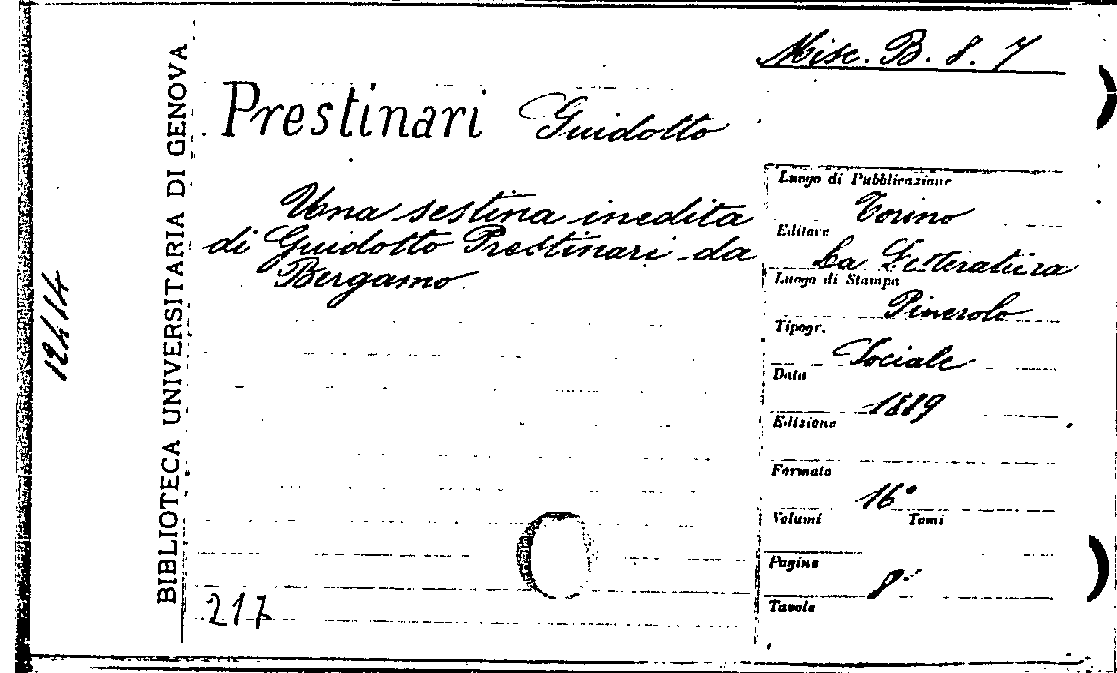 Misc. B. 8. 7
Prestinari Guidotto
Una sestina inedita
di Guidotto Prestinari da
Bergamo
BIBLIOTECA UNIVERSITARIA DI GENOVA
12414
217
Luogo di Pubblicazione
Torino
Editore
La Letteratura
Luogo di Stampa
Pinerolo
Tipogr.
Sociale
Data
1889
Edizione
Formato
16°
Volumi Tomi
Pagine
8
Tavole